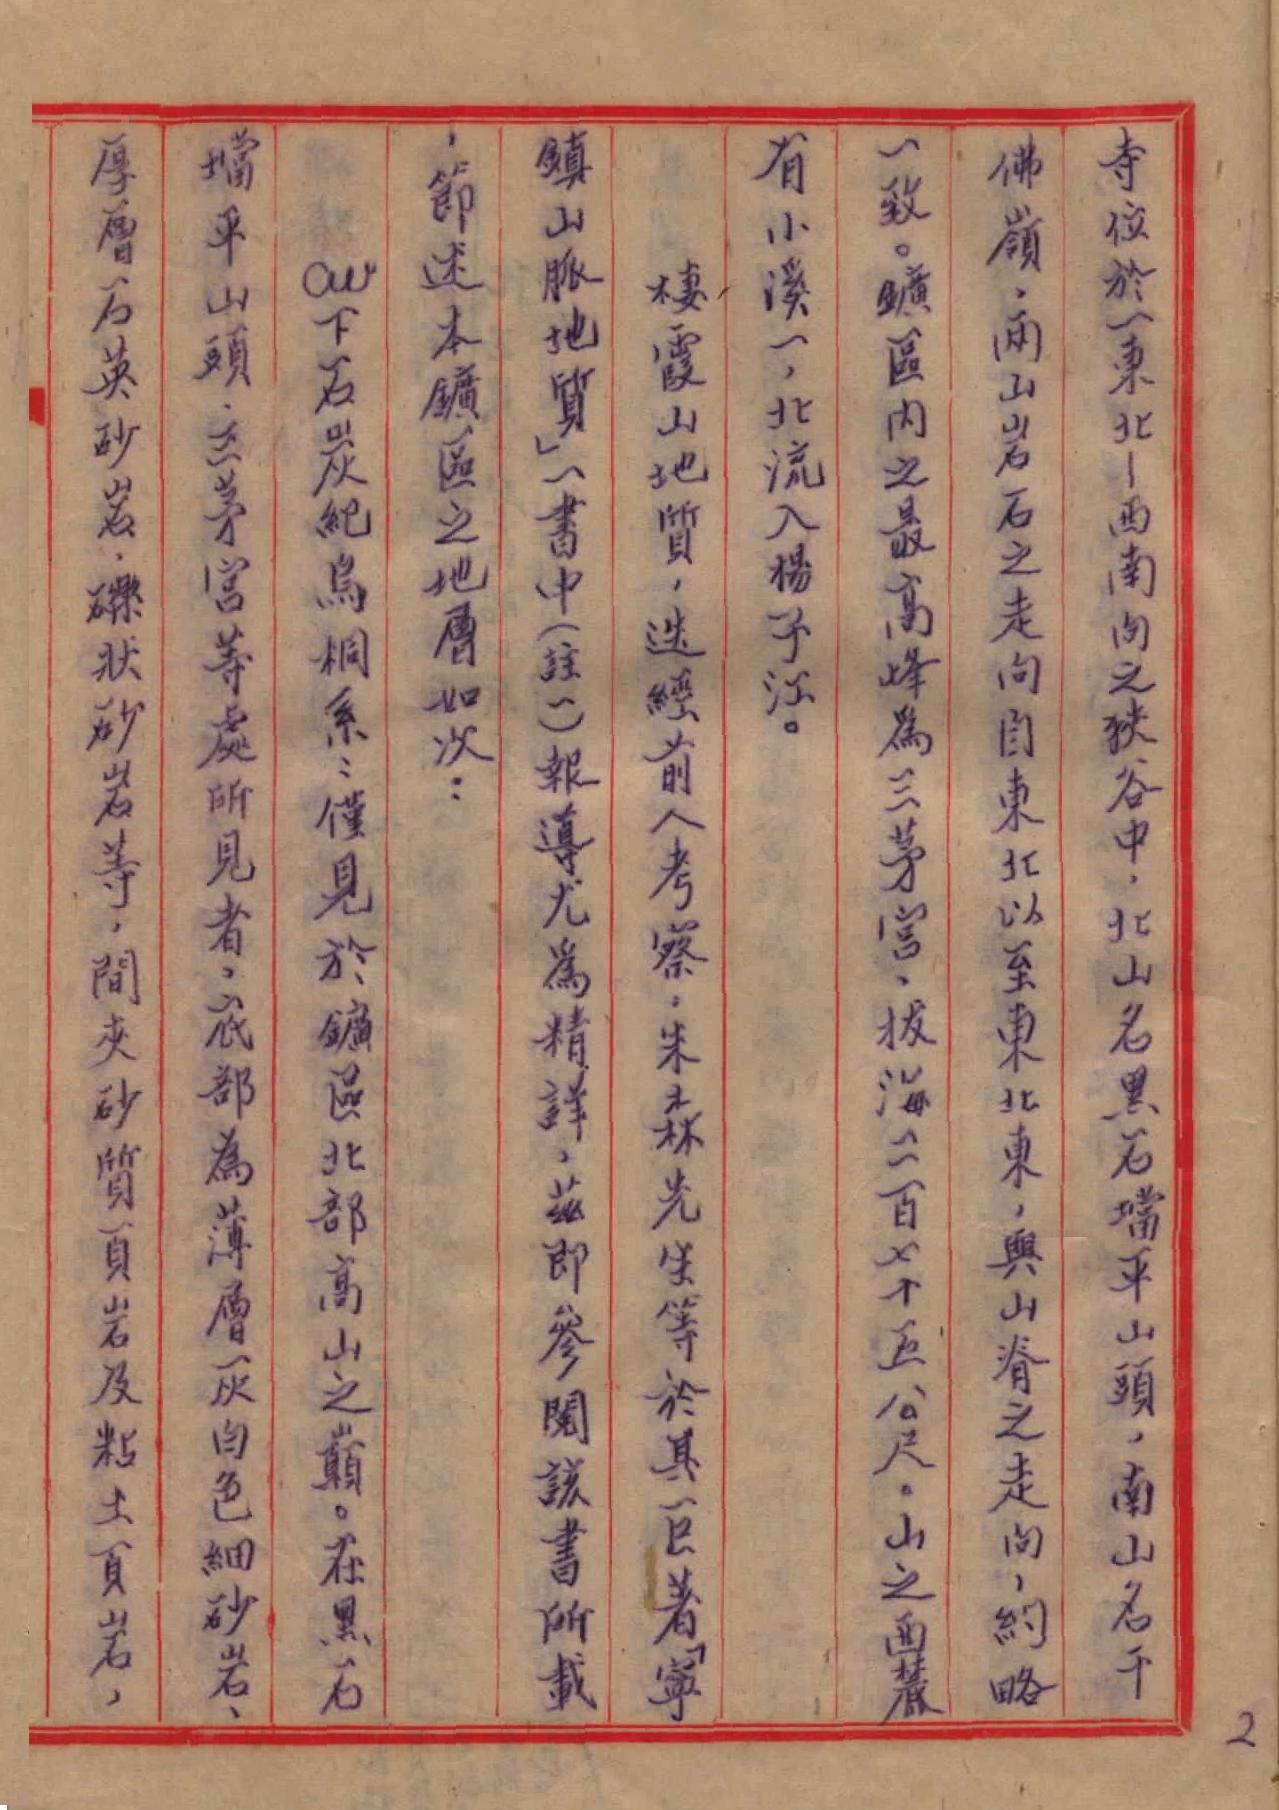 寺位於一東北—西南向之狹谷中，北山名黑石壋平山頭，南山名千
佛嶺，兩山岩石之走向自東北以至東北東，與山脊之走向，約略
一致。鑛區內之最高峰為三茅宮，拔海二百七十五公尺。山之西麓
有小溪一，北流入楊子江。
棲霞山地質，迭經前人考察，朱森先生等於其巨著「寧
鎮山脈地質」一書中（註一）報導尤為精詳，茲即參閱該書所載
，節述本鑛區之地層如次：
Cw下石炭紀烏桐系：僅見於鑛區北部高山之巔。在黑石
壋平山頭，三茅宮等處所見者，底部為薄層灰白色細砂岩、
厚層石英砂岩，礫狀砂岩等，間夾砂質頁岩及粘土頁岩，
2